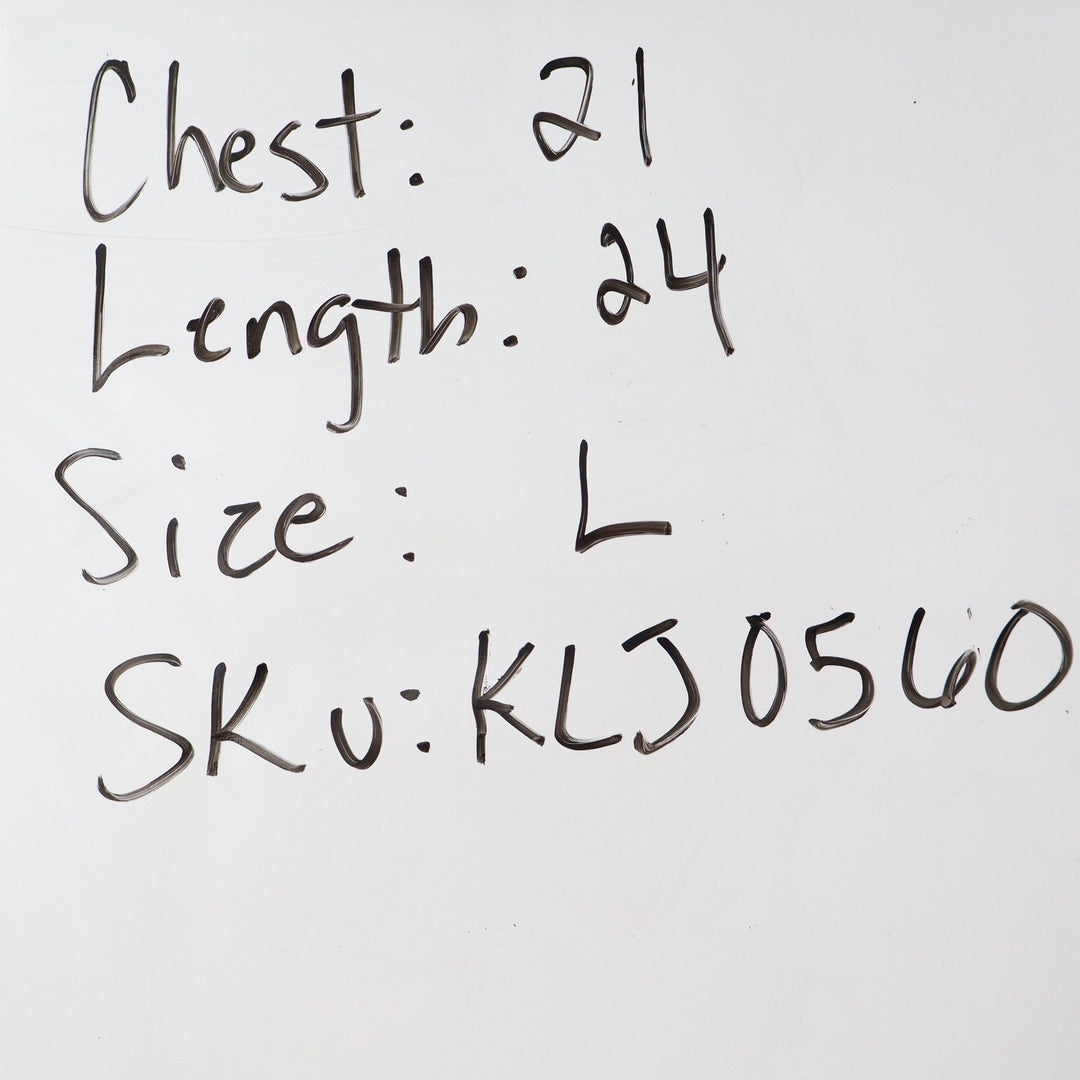 Chest: 21
Length: 24
Size: L
SKU: KLJ0560